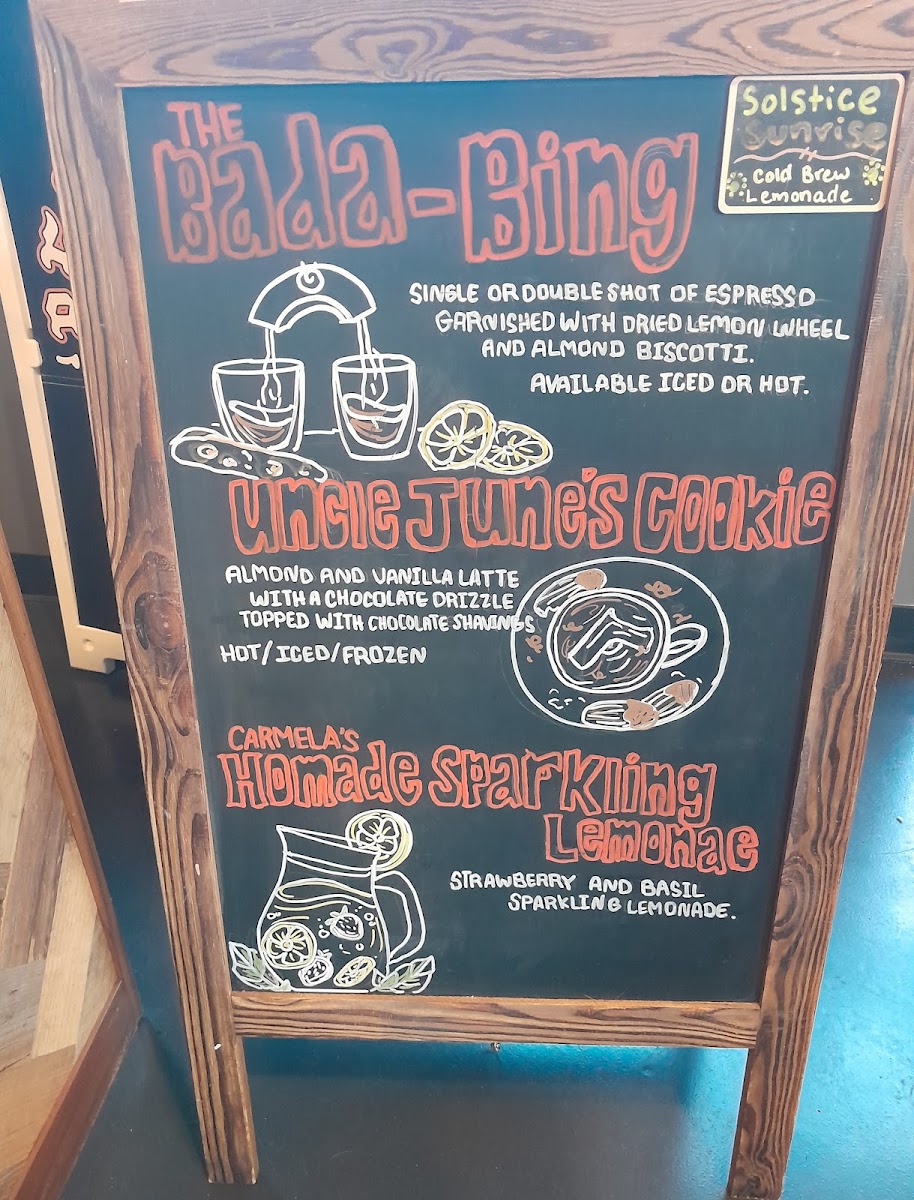 THE
Bada-Bing
SINGLE OR DOUBLE SHOT OF ESPRESSO
GARNISHED WITH DRIED LEMON WHEEL
AND ALMOND BISCOTTI.
AVAILABLE ICED OR HOT.
Solstice
Sunrise
Cold Brew
Lemonade
Uncle June's Cookie
ALMOND AND VANILLA LATTE
WITH A CHOCOLATE DRIZZLE
TOPPED WITH CHOCOLATE SHAVINGS
HOT/ICED/FROZEN
CARMELA'S
Homade Sparkling
Lemonae
STRAWBERRY AND BASIL
SPARKLING LEMONADE.